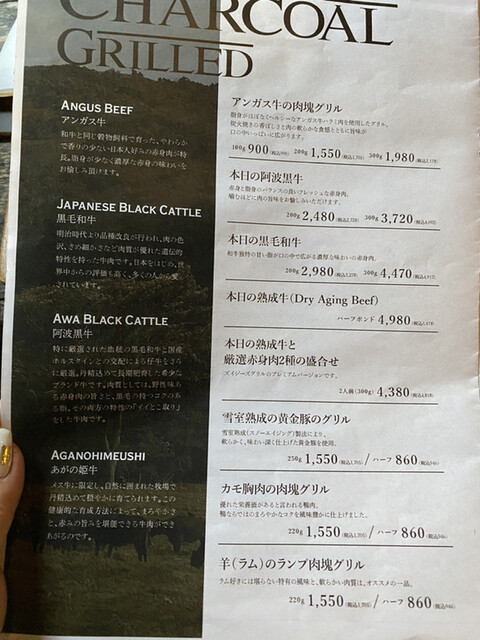 CHARCOAL
GRILLED
ANGUS BEEF
アンガス牛
和牛と同じ穀物飼料で育った、やわらか
で香りの少ない日本人好みの赤身肉が特
長。脂身が少なく濃厚な赤身の味わいを
お愉しみ頂けます。
JAPANESE BLACK CATTLE
黒毛和牛
明治時代より品種改良が行われ、肉の色
沢、きめ細かさなど肉質が優れた遺伝的
特性を持った牛肉です。日本をはじめ、世
界中からの評価も高く、多くの人から愛
されています。
AWA BLACK CATTLE
阿波黒牛
特に厳選された血統の黒毛和牛と国産
ホルスタインとの交配による仔牛をさら
に厳選。丹精込めて長期肥育した希少な
ブランド牛です。肉質としては、野性味あ
る赤身の旨さと、黒毛の持つコクのあ
る脂。その両方の特性の「イイとこ取り」
をした牛肉です。
AGANOHIMEUSHI
あがの姫牛
メス牛に限定し、自然に囲まれた牧場で
丹精込めて穏やかに育てられます。この
健康的な育成方法によって、まろやかさ
と、赤みの旨みを堪能できる牛肉ができ
あがるのです。
アンガス牛の肉塊グリル
脂身がほぼなくヘルシーなアンガス牛ハラミ肉を使用したグリル。
炭火焼きの香ばしさと肉の柔らかな食感とともに旨味が
口の中いっぱいに広がります。
100g 900(税込990) 200g 1,550(税込1,705) 300g 1,980(税込2,178)
本日の阿波黒牛
赤身と脂身のバランスの良いフレッシュな赤身肉。
噛むほどに肉の旨味をお愉しみいただけます。
200g 2,480(税込2,728) 300g 3,720(税込4,092)
本日の黒毛和牛
和牛独特の甘い脂が口の中で広がる濃厚な味わいの赤身肉。
200g 2,980(税込3,278) 300g 4,470(税込4,917)
本日の熟成牛(Dry Aging Beef)
ハーフポンド 4,980(税込5,478)
本日の熟成牛と
厳選赤身肉2種の盛合せ
ズイジーズグリルのプレミアムバージョンです。
2人前(300g) 4,380(税込4,818)
雪室熟成の黄金豚のグリル
雪室熟成(スノーエイジング)製法により、
軟らかく、味わい深く仕上げた黄金豚を使用。
250g 1,550(税込1,705)/ハーフ 860(税込946)
カモ胸肉の肉塊グリル
優れた栄養価があると言われる鴨肉。
鴨ならではのまろやかなコクを風味豊かに仕上げました。
220g 1,550(税込1,705)/ハーフ 860(税込946)
羊(ラム)のランプ肉塊グリル
ラム好きには堪らない特有の風味と、軟らかい肉質は、オススメの一品。
220g 1,550(税込1,705)/ハーフ 860(税込946)